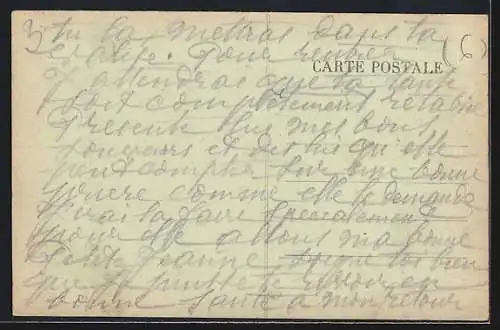 3) tu la mettras dans ta
valise. Pour rentrer (6)
CARTE POSTALE
attendras que ta santé
soit complètement rétablie
présente lui mes bons
souvenirs et dis lui qu'elle
peut compter sur une bonne
prière comme elle le demande
j'irai la faire spécialement
pour elle allons ma bonne
Petite Jeanne soigne toi bien
que je puisse te revoir en
bonne santé a mon retour